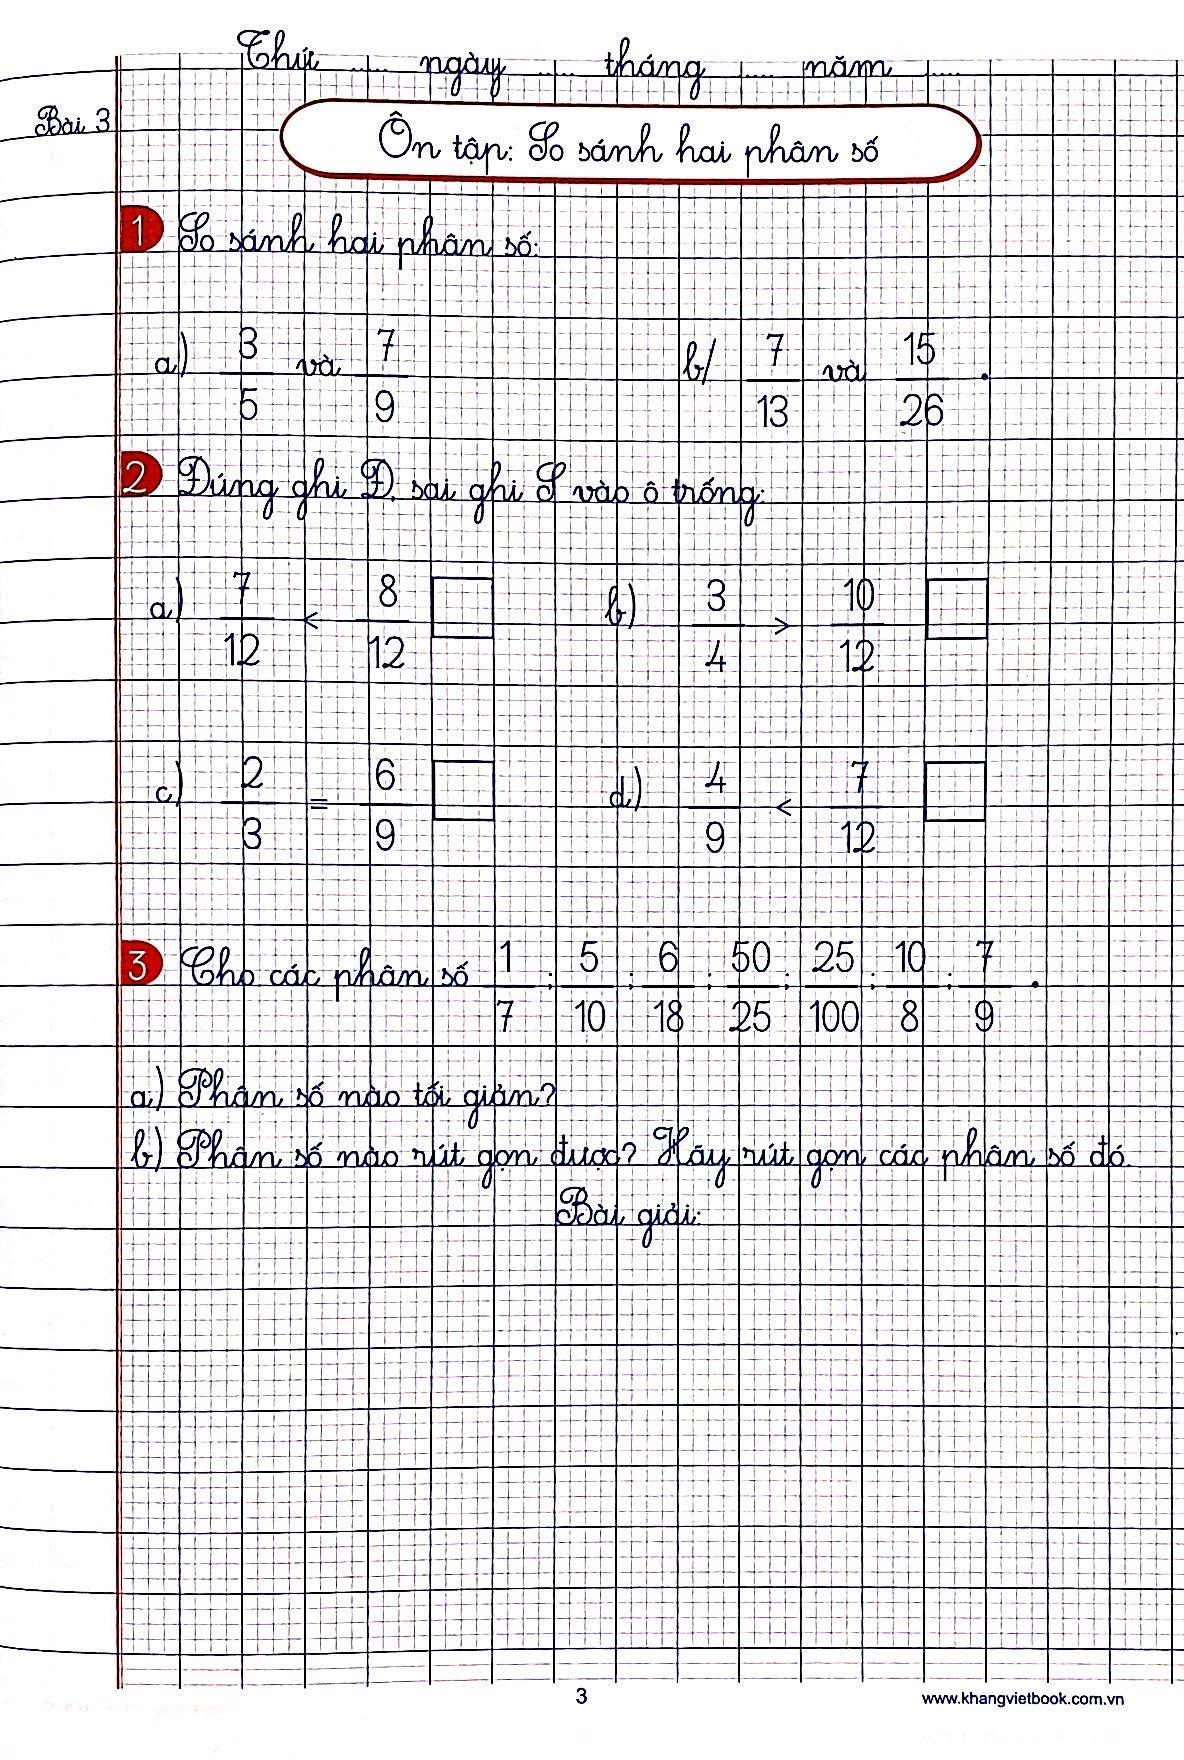 Thứ ..... ngày ..... tháng ..... năm .....
Bài 3
Ôn tập: So sánh hai phân số
1 So sánh hai phân số:
a) 3/5 và 7/9 b/ 7/13 và 15/26 .
2 Đúng ghi Đ, sai ghi S vào ô trống:
a) 7/12 < 8/12 b) 3/4 > 10/12
c) 2/3 = 6/9 d) 4/9 < 7/12
3 Cho các phân số 1/7 ; 5/10 ; 6/18 ; 50/25 ; 25/100 ; 10/8 ; 7/9 .
a) Phân số nào tối giản?
b) Phân số nào rút gọn được? Hãy rút gọn các phân số đó.
Bài giải:
3
www.khangvietbook.com.vn